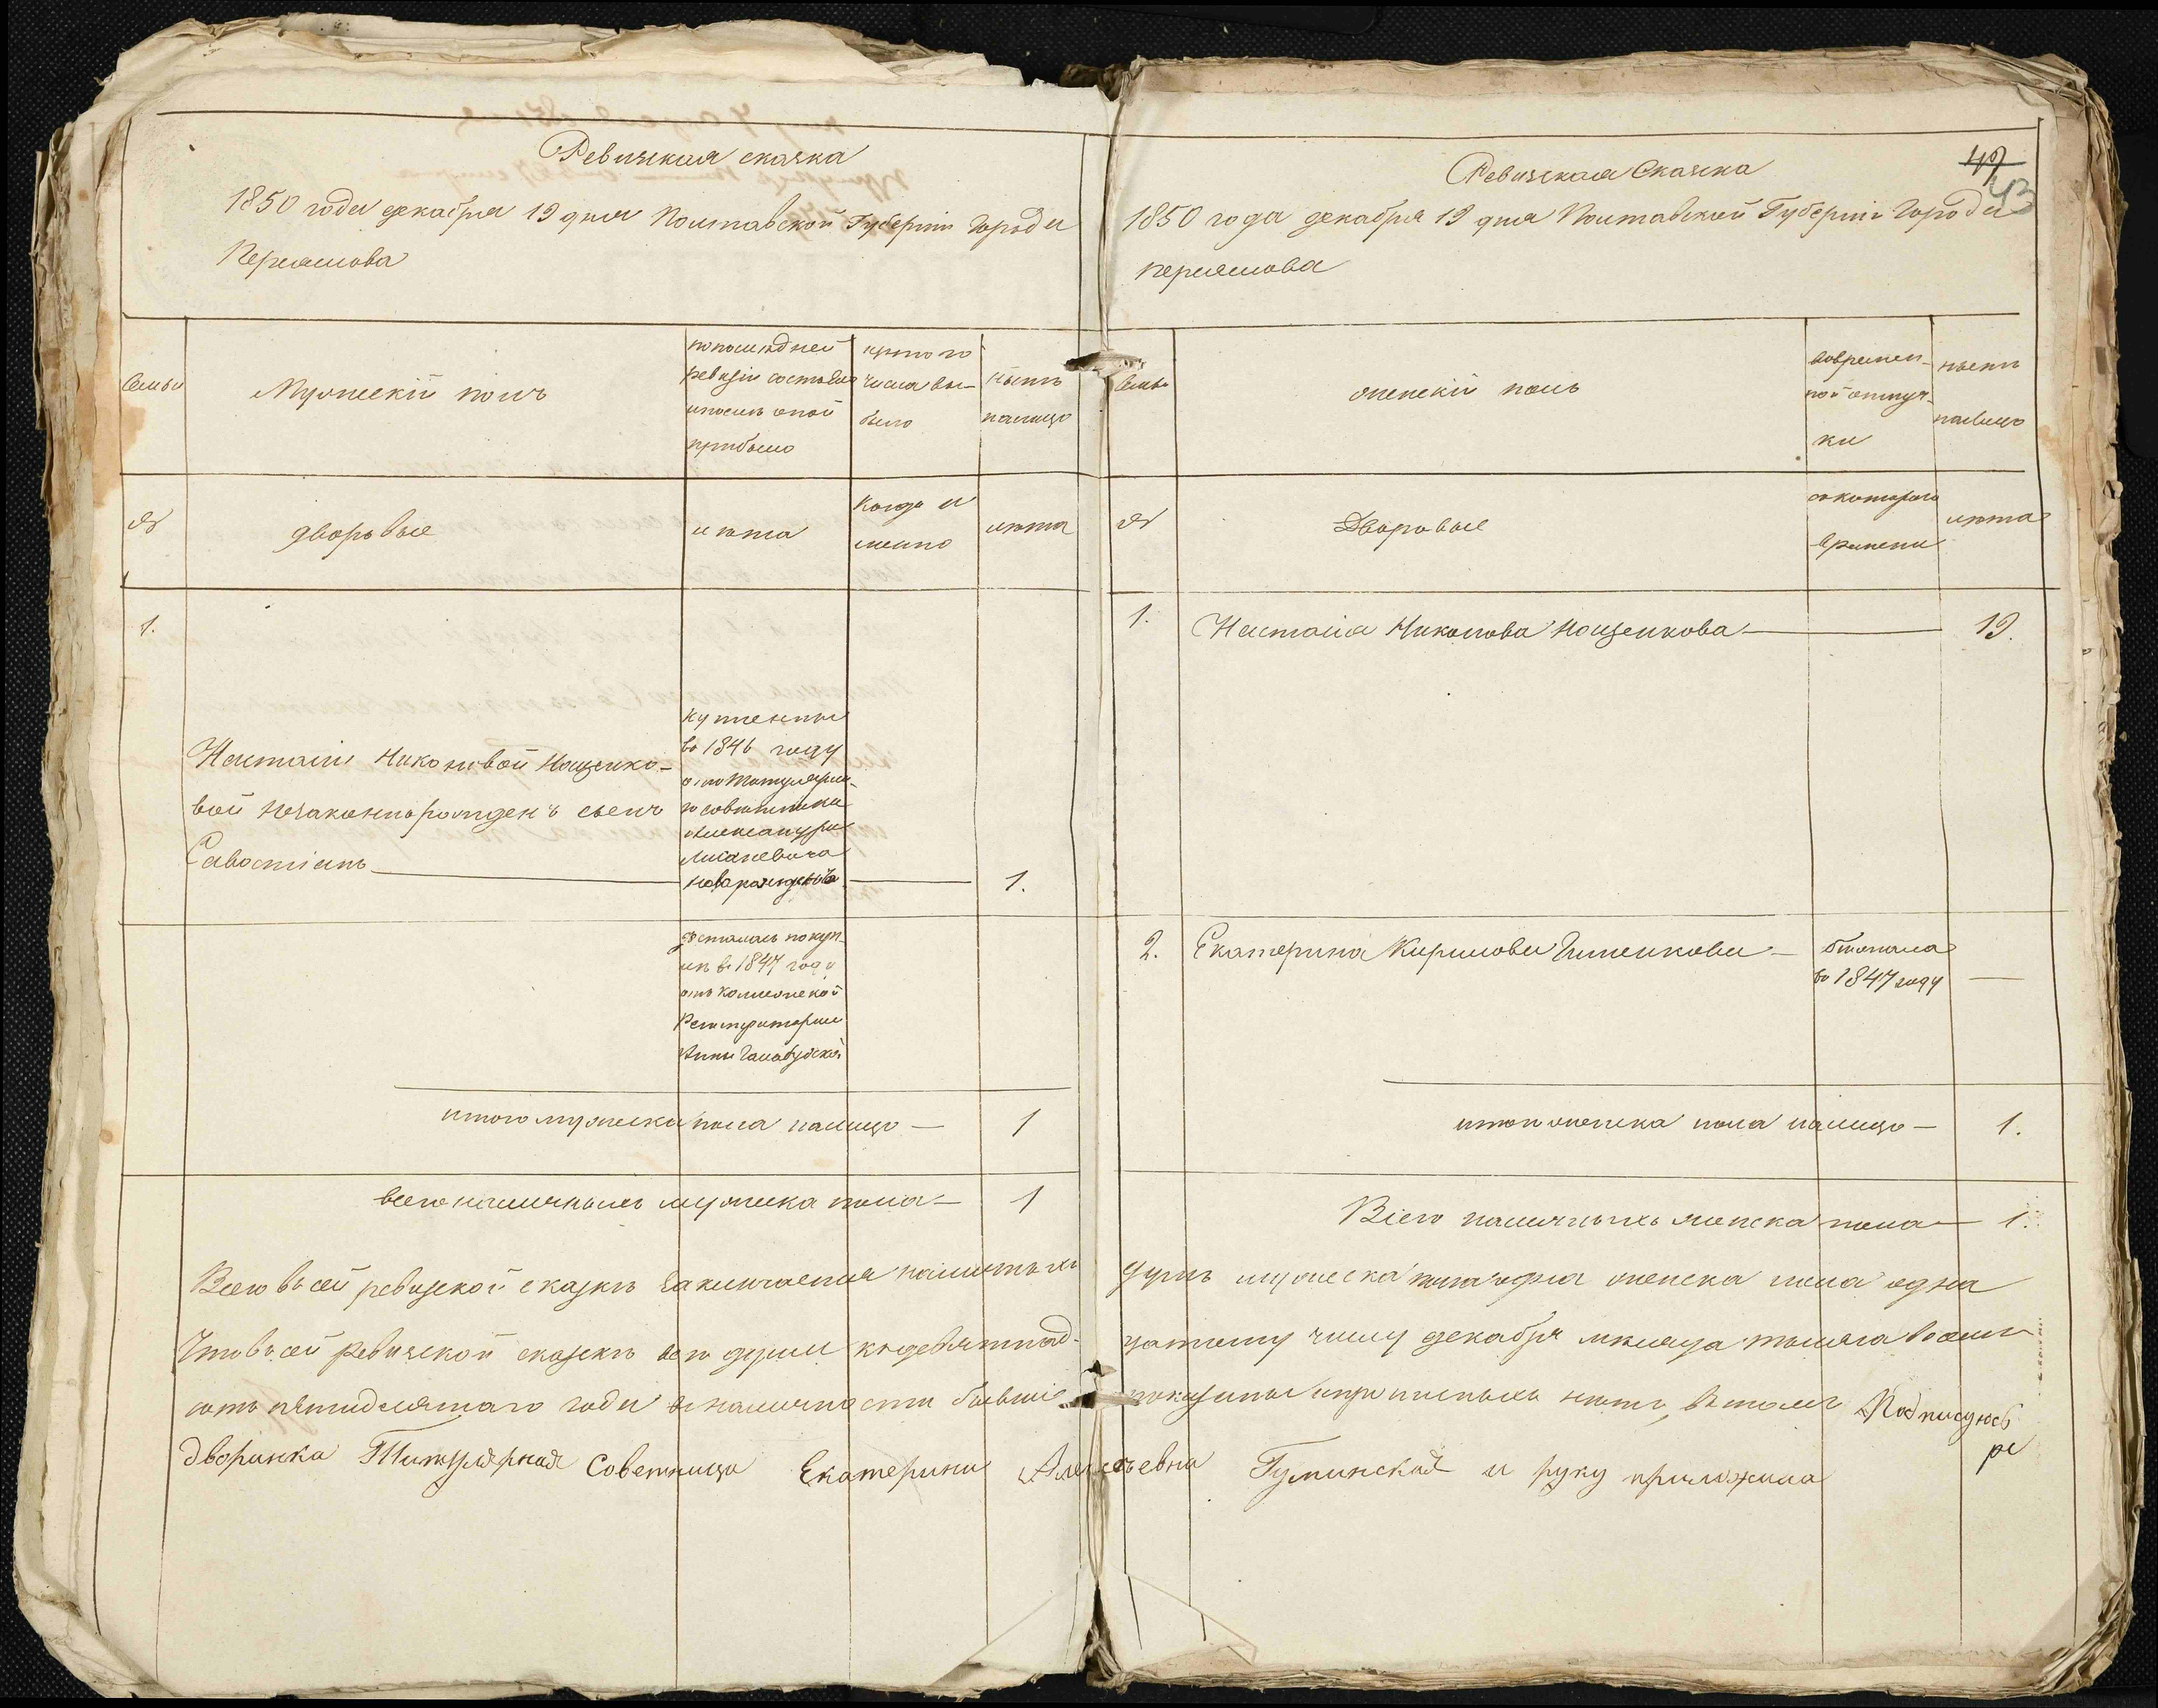 Ревизская сказка
1850 года декабря 19 дня Полтавской Губерніи Города
Переяслова
Семьи
Мужескій полъ
по последней
ревизіи состояло
и после оной
прибыло
изъ того
числа вы-
было
ныне
налицо
№
дворовые
лета
когда и
имянно
лета
1.
Настасіи Никоновой Нощенко-
вой незаконнорожденъ сынъ
Савостіянъ
купленны
во 1846 году
отъ Титулярна-
го советника
Александра
новорожденъ
1.
досталась по куп-
ле в 1847 году
отъ Колежской
Регистраторши
Анны
итого мужеска пола налицо — 1
всего наличныхъ мужеска пола — 1
Ревизская Сказка
47
43
1850 года декабря 19 дня Полтавской Губерніи Города
переяслова
Семьи
женскій полъ
во времен-
ной отлуч-
ке
ныне
налицо
№
Дворовые
с котораго
времени
лета
1. Настасія Никонова Нощенкова — 19.
2. Екатерина Кирилова —
во 1847 году —
итого женска пола налицо — 1.
Всего наличныхъ женска пола — 1.
Всего в сей ревизской сказке заключается наличныхъ душъ мужеска пола одна женска пола одна
Что в сей ревизской сказке все души к девятнад- цатому числу декабря месяца тысяча восем
сотъ пятидесятаго года в наличности бывшіе показаны и прописныхъ нетъ, в томъ Подписуюсь
дворянка Титулярная Советница Екатерина Алексеевна Гуминская и руку приложила